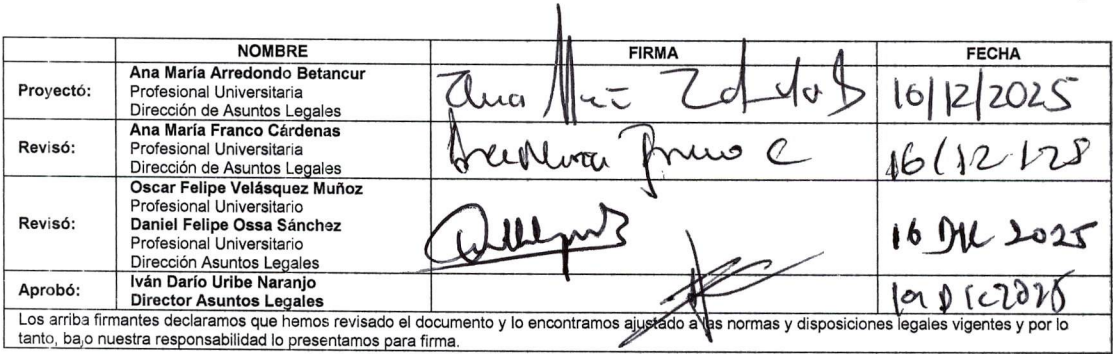 NOMBRE FIRMA FECHA
Proyectó: Ana María Arredondo Betancur
Profesional Universitaria
Dirección de Asuntos Legales
16/12/2025
Revisó: Ana María Franco Cárdenas
Profesional Universitaria
Dirección de Asuntos Legales
Revisó: Oscar Felipe Velásquez Muñoz
Profesional Universitario
Daniel Felipe Ossa Sánchez
Profesional Universitario
Dirección Asuntos Legales
16 Dic 2025
Aprobó: Iván Darío Uribe Naranjo
Director Asuntos Legales
Los arriba firmantes declaramos que hemos revisado el documento y lo encontramos ajustado a las normas y disposiciones legales vigentes y por lo
tanto, bajo nuestra responsabilidad lo presentamos para firma.